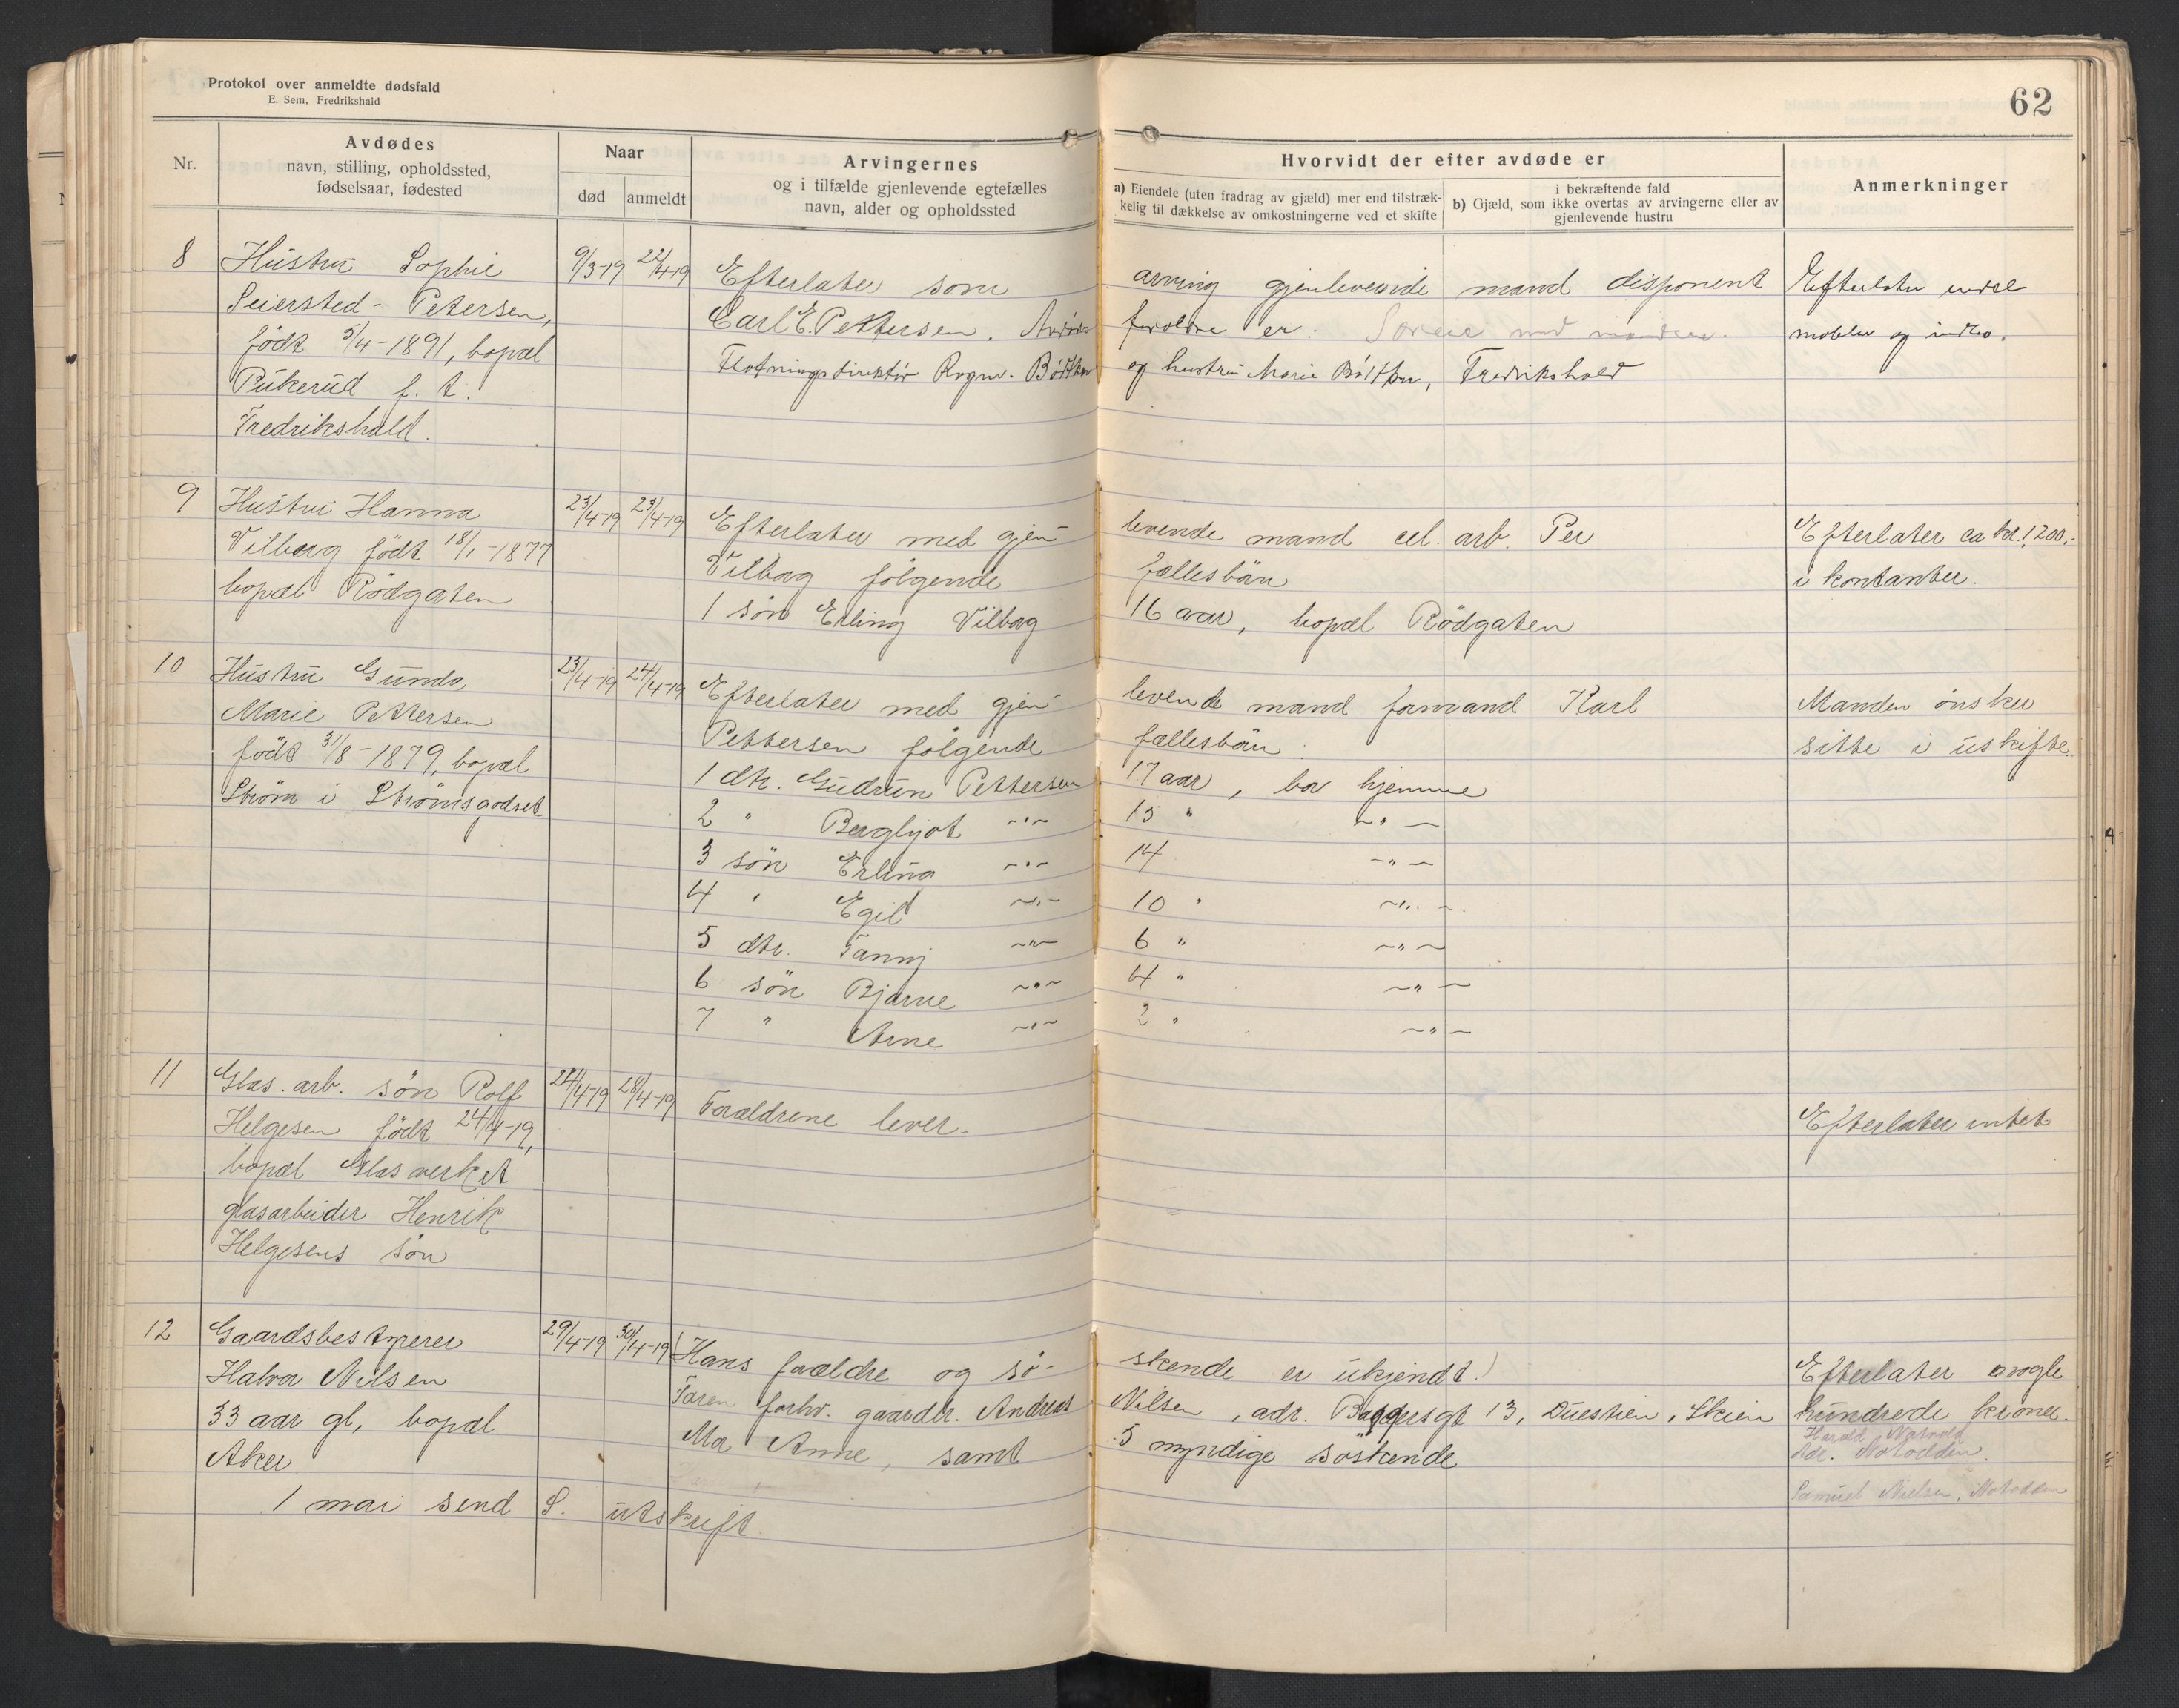 Protokol over anmeldte dødsfald
E. Sem, Fredrikshald
62
Nr.
Avdødes
navn, stilling, opholdssted,
fødselsaar, fødested
Naar
død
anmeldt
Arvingernes
og i tilfælde gjenlevende egtefælles
navn, alder og opholdssted
Hvorvidt der efter avdøde er
a) Eiendele (uten fradrag av gjæld) mer end tilstræk-
kelig til dækkelse av omkostningerne ved et skifte
i bekræftende fald
b) Gjæld, som ikke overtas av arvingerne eller av
gjenlevende hustru
Anmerkninger
8 Hustru Sophie 9/3-19 22/4-19 Efterlater som arving gjenlevende mand disponent Efterlater endel
Seiersted-Petersen, Carl E. Pettersen. Avdødes forældre er: møbler og indbo.
født 5/4-1891, bopæl Fløtningsdirektør Ragnv. Bødtker og hustru Marie Bødtker, Fredrikshald
Pukerud f. t.
Fredrikshald.
9 Hustru Hanna 23/4-19 23/4-19 Efterlater med gjen- levende mand cel. arb. Per Efterlater ca kr. 1200.-
Vilborg født 18/1-1877 Vilborg følgende fællesbarn i kontanter.
bopæl Rödgaten 1 søn Erling Vilborg 16 aar, bopæl Rödgaten
10 Hustru Gunda 23/4-19 24/4-19 Efterlater med gjen- levende mand formand Karl Manden ønsker
Marie Pettersen Pettersen følgende fællesbarn: sitte i uskifte.
født 31/8-1879, bopæl 1 dtr. Gudrun Pettersen 17 aar, bor hjemme
Strøm i Strømsgodset 2 " Bergljot -"- 15 " -"-
3 søn Erling -"- 14 -"-
4 " Egil -"- 10 " -"-
5 dtr. Fanny -"- 6 " -"-
6 søn Bjarne -"- 4 " -"-
7 " Arne -"- 2 " -"-
11 Glas. arb. søn Rolf 24/4-19 28/4-19 Forældrene lever. Efterlater intet
Helgesen født 24/4-19,
bopæl Glasverket
glasarbeider Henrik
Helgesens søn
12 Gaardsbestyrer 29/4-19 30/4-19 (Hans forældre og sø- skende er ukjendt.) Efterlater nogle
Halvor Nilsen Faren forhv. gaardbr. Andreas Nilsen, adr. Baggersgt 13, Duestien, Skien hundrede kroner.
33 aar gl, bopæl Mor Anne, samt 5 myndige søskende Harald
Aker Adr. Notodden.
1 mai send S. utskrift. Samuel Nielsen, Notodden